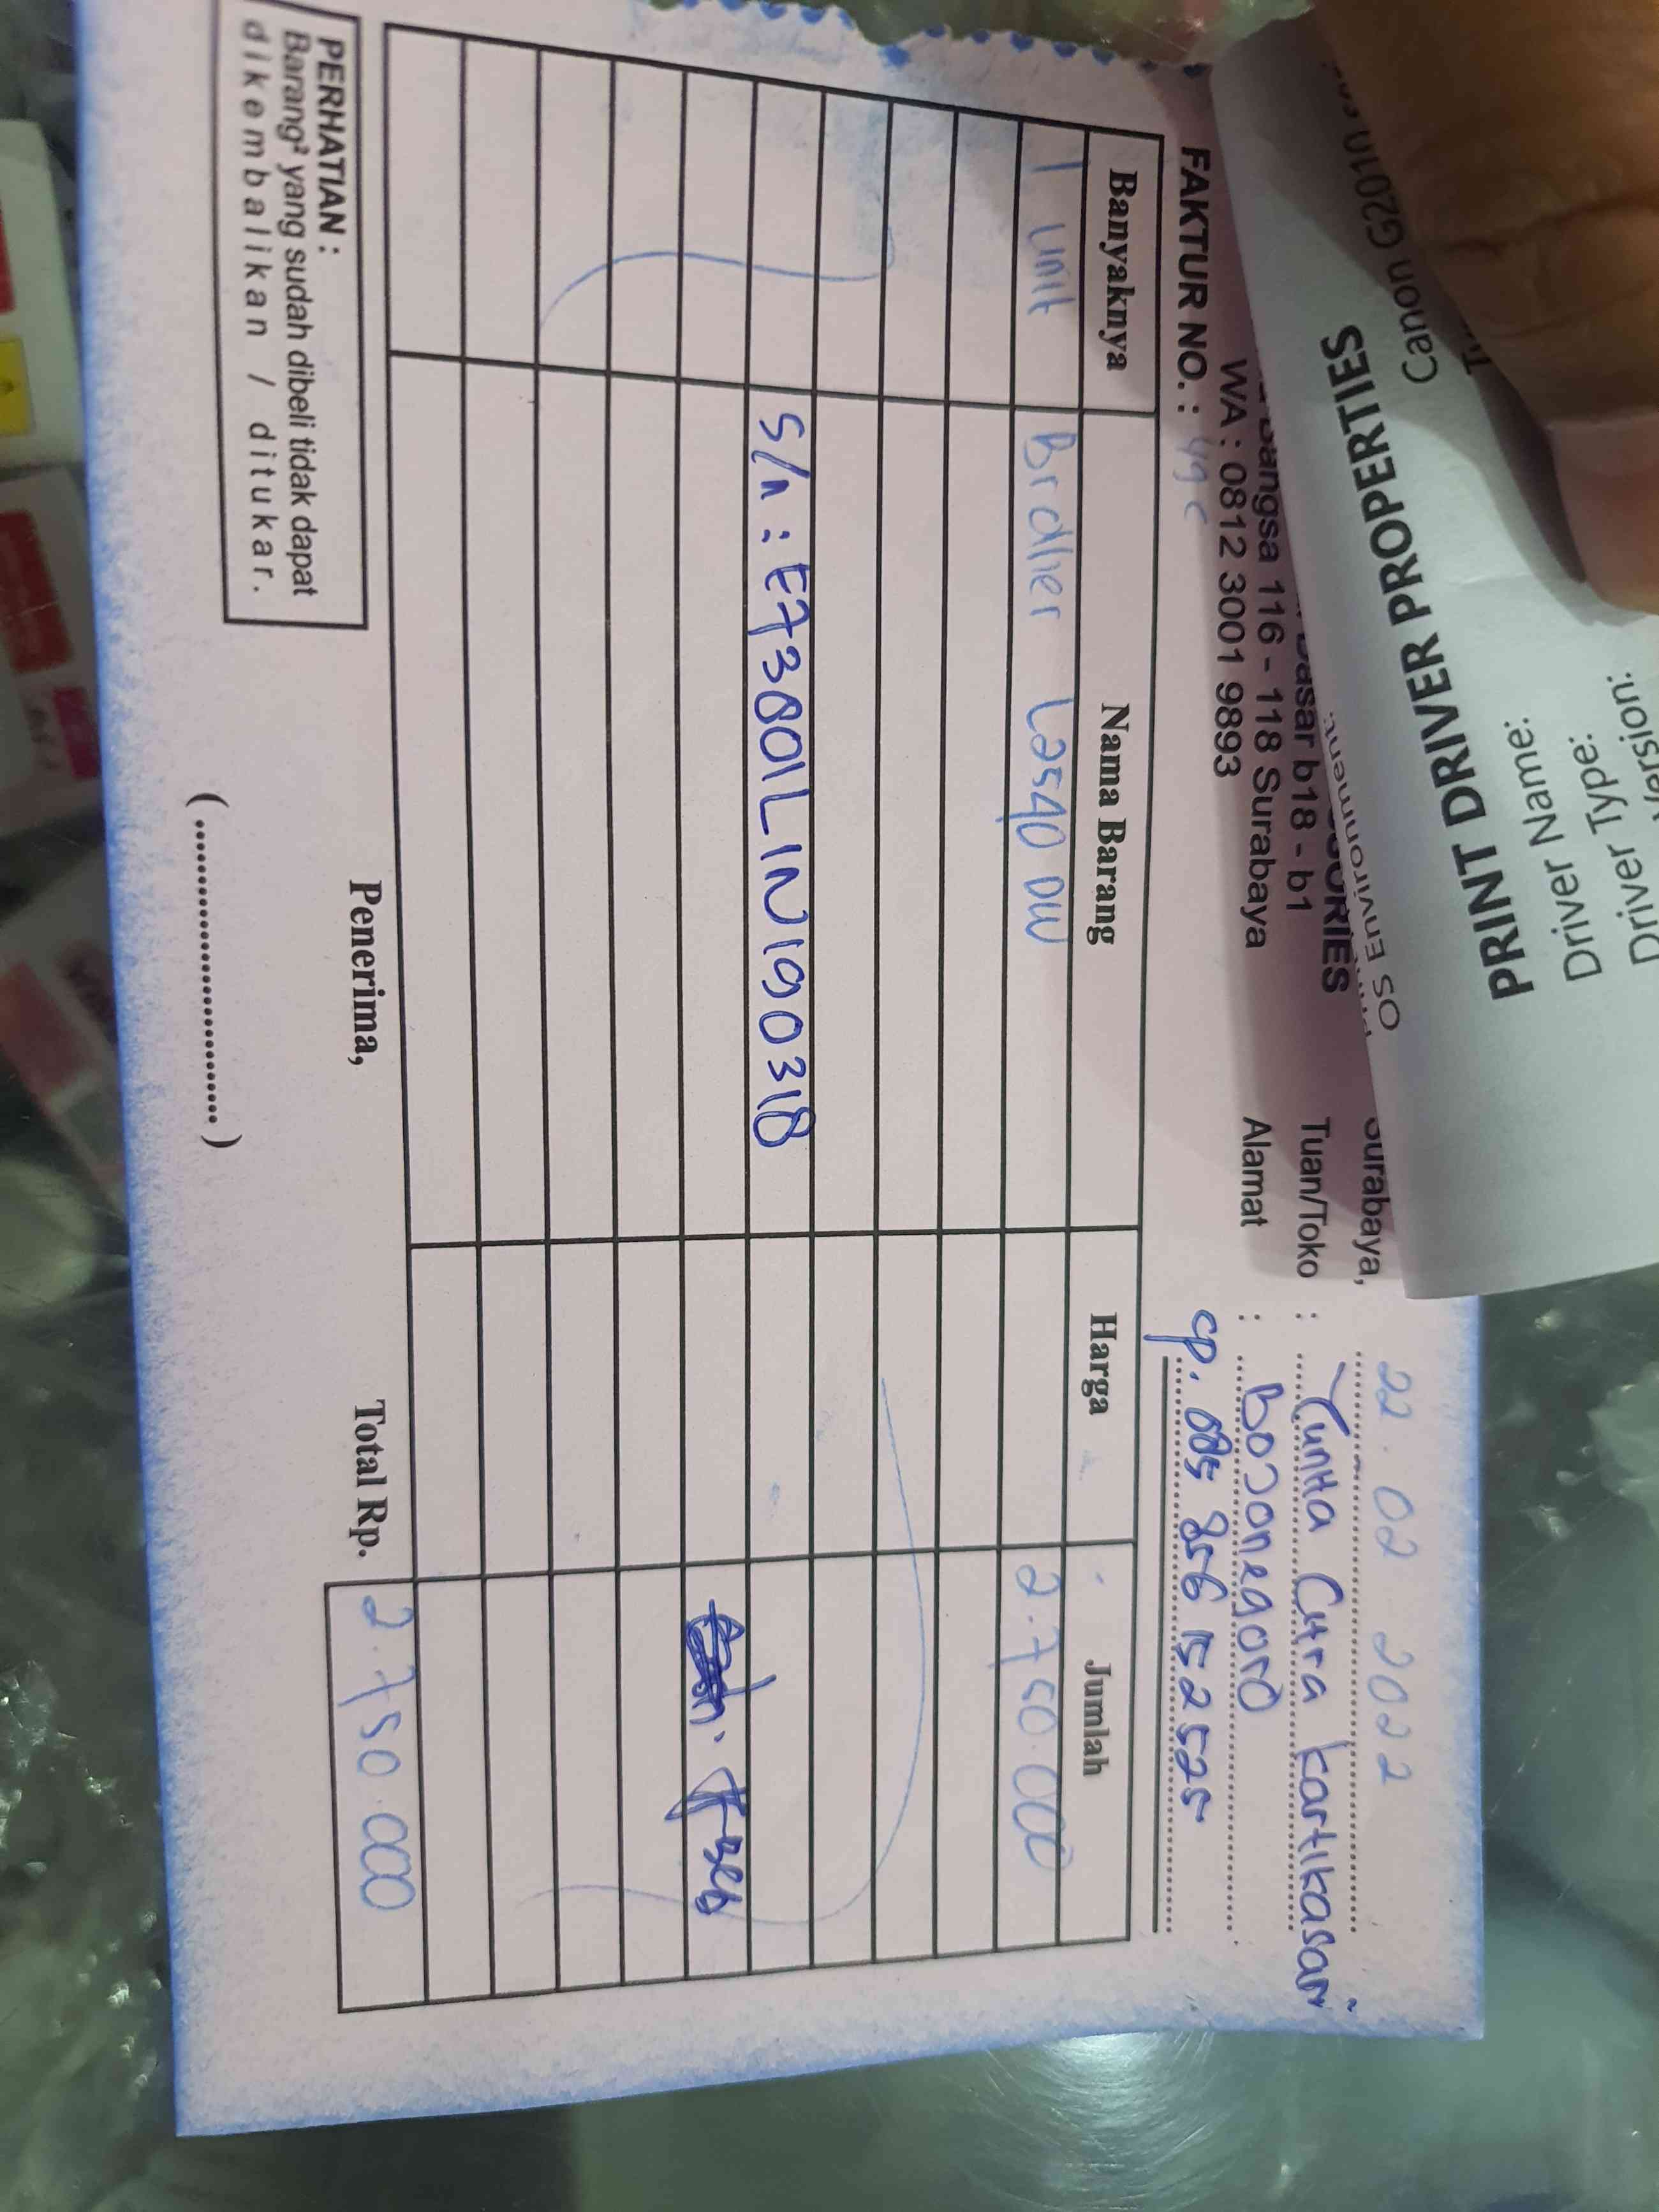 Surabaya, 22 . 02 2022
Tuan/Toko : Yunita Citra Kartikasari
Alamat : Bojonegoro
cp. 085 856 152525
ORIES
asar b18 - b1
angsa 116 - 118 Surabaya
WA : 0812 3001 9893
FAKTUR NO. :
Banyaknya Nama Barang Harga Jumlah
1 unit Brother L2540 DW 2.750.000
S/n : E73800L1N190318
PERHATIAN :
Barang² yang sudah dibeli tidak dapat
dikembalikan / ditukar.
Penerima,
(..............................)
Total Rp. 2.750.000
OS Environment:
PRINT DRIVER PROPERTIES
Canon G2010
Driver Name:
Driver Type:
Driver Version: